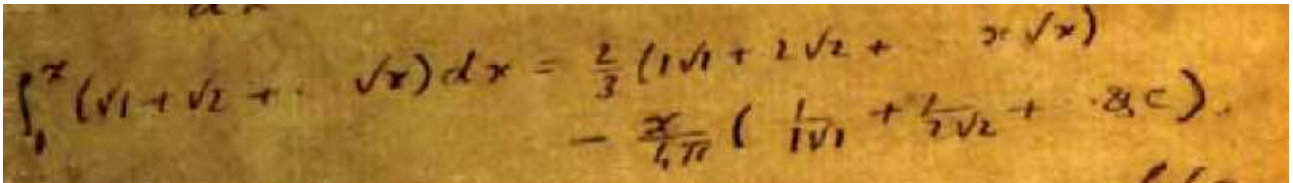 ∫₁ˣ (√1 + √2 + · √x) dx = 2/3 (1√1 + 2√2 + x√x)
− x/4π ( 1/1√1 + 1/2√2 + · &c ).